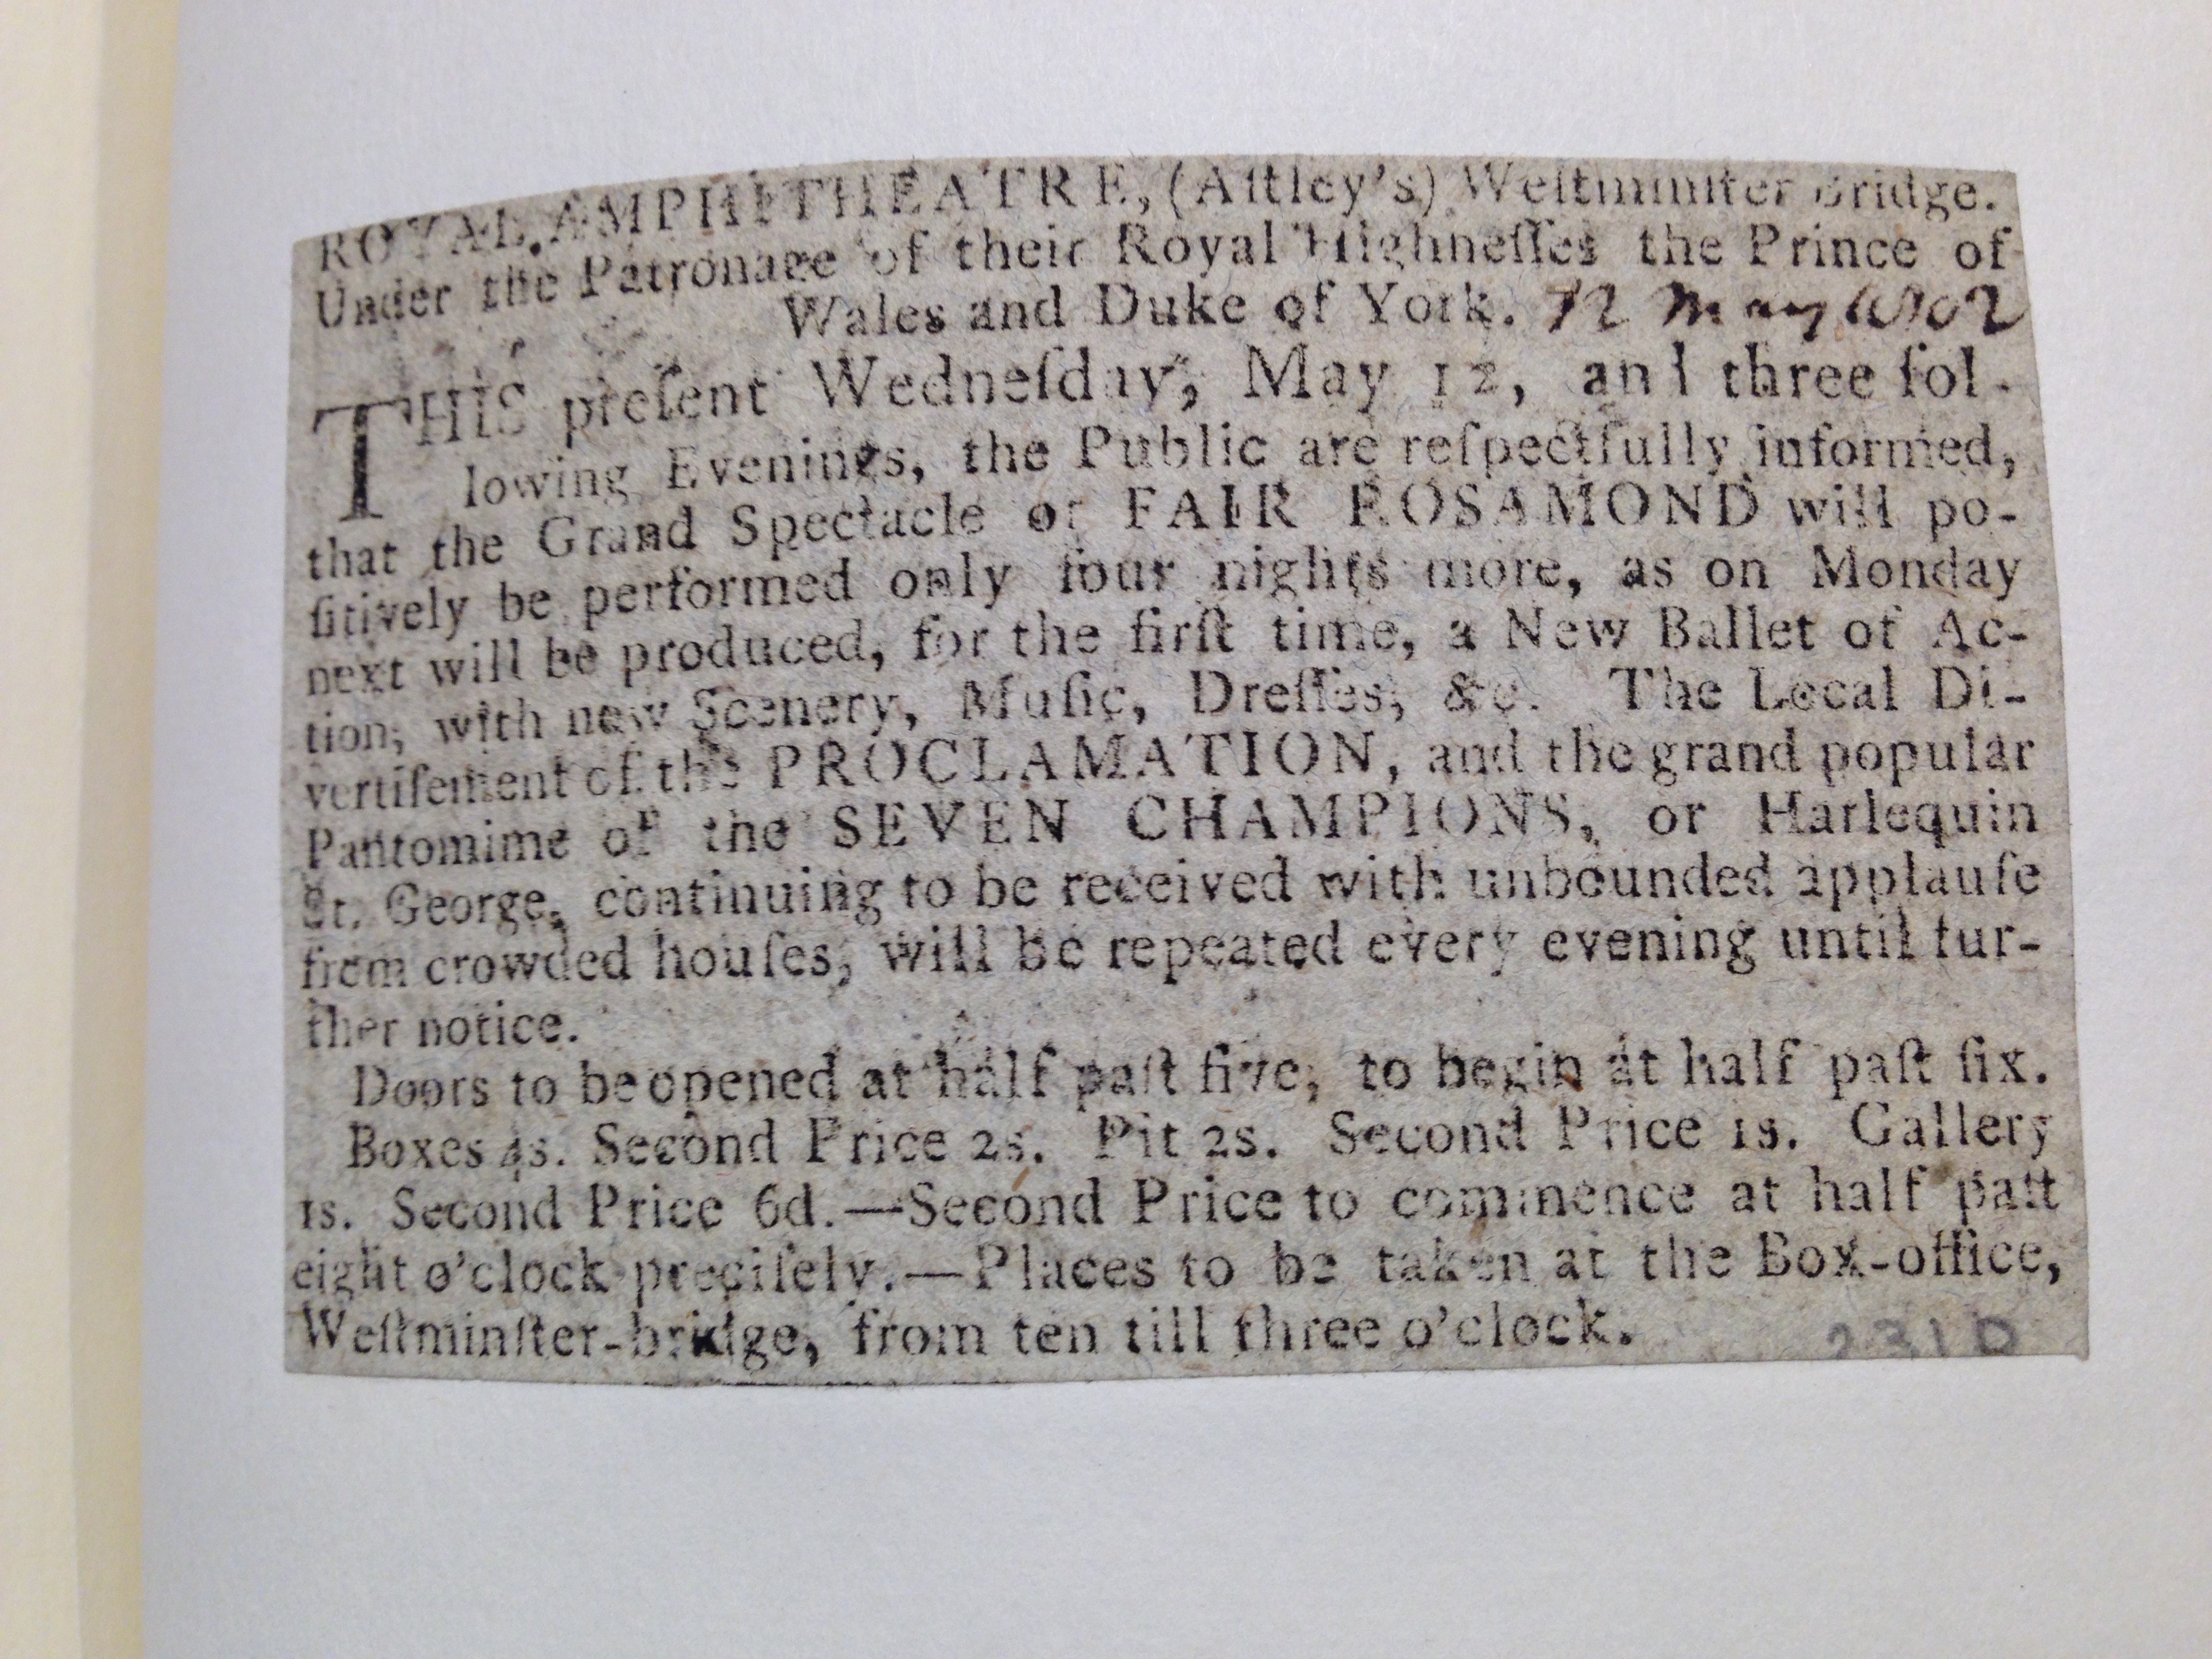 ROYAL AMPHITHEATRE, (Aſtley's) Weſtminſter Bridge.
Under the Patronage of their Royal Highneſſes the Prince of
Wales and Duke of York. 12 May 1802
THIS preſent Wedneſday, May 12, and three fol-
lowing Evenings, the Public are reſpectfully informed,
that the Grand Spectacle of FAIR ROSAMOND will po-
ſitively be performed only four nights more, as on Monday
next will be produced, for the firſt time, a New Ballet of Ac-
tion, with new Scenery, Muſic, Dreſſes, &c. The Local Di-
vertiſement of the PROCLAMATION, and the grand popular
Pantomime of the SEVEN CHAMPIONS, or Harlequin
St. George, continuing to be received with unbounded applauſe
from crowded houſes, will be repeated every evening until fur-
ther notice.
Doors to be opened at half paſt five, to begin at half paſt ſix.
Boxes 4s. Second Price 2s. Pit 2s. Second Price 1s. Gallery
1s. Second Price 6d.—Second Price to commence at half paſt
eight o'clock preciſely.—Places to be taken at the Box-office,
Weſtminſter-bridge, from ten till three o'clock.